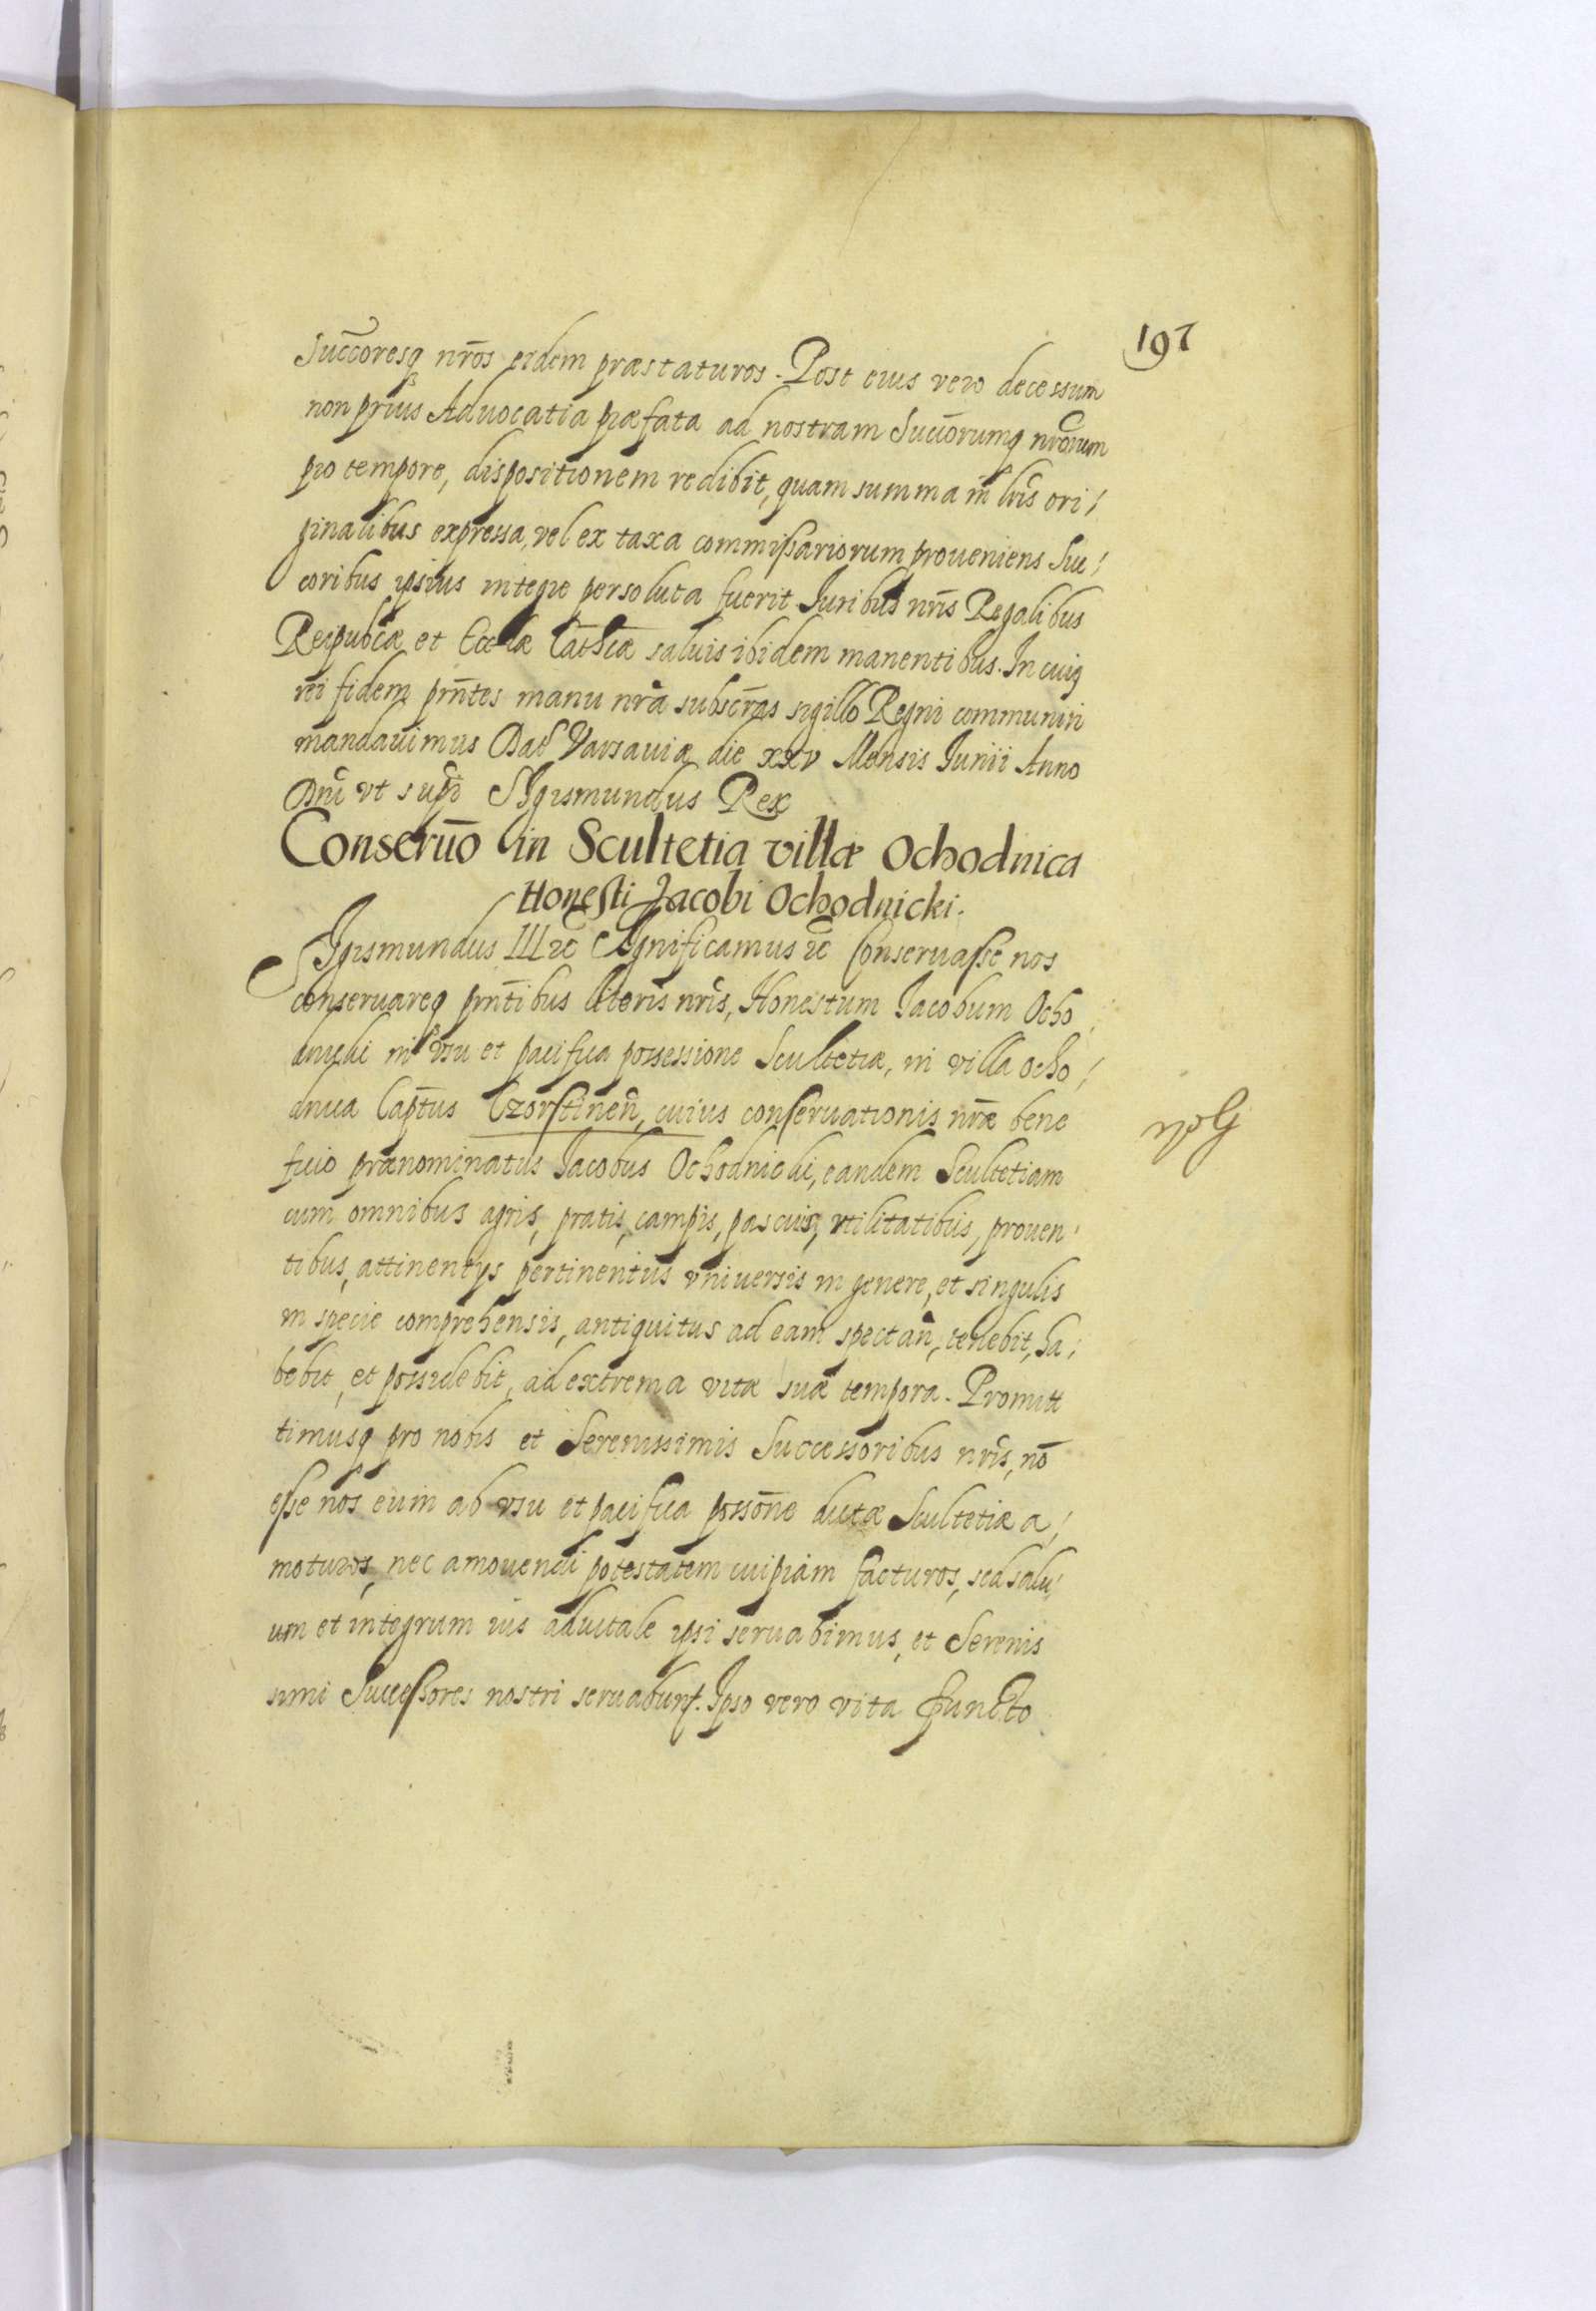 197
Succoresq nros eidem præstaturos. Post eius vero decessum
non prius Advocatia præfata ad nostram Succorumq nrorum
pro tempore, dispositionem redibit, quam summa in lris ori/
ginalibus expressa, vel ex taxa commissariorum proueniens Suc/
coribus ipsius integre persoluta fuerit. Iuribus nris Regalibus
Reipubcæ et Ecclæ Cathcæ saluis ibidem manentibus. In cuiq
rei fidem pntes manu nra subscras sigillo Regni communiri
mandauimus Dat Varsauiæ die xxv Mensis Iunii Anno
Dni vt supr Sigismundus Rex
Conseruo in Scultetia villæ Ochodnica
Honesti Jacobi Ochodnicki.
Sigismundus III etc Significamus etc Conseruasse nos
conseruareq pntibus literis nris, Honestum Iacobum Ocho
dnicki in vsu et pacifica possessione Scultetiæ, in villa Ocho/
dnica Captus Czorstinen, cuius conseruationis nræ bene
ficio prænominatus Iacobus Ochodnicki, eandem Scultetiam
cum omnibus agris, pratis, campis, pascuis, vtilitatibus, prouen
tibus, attinentijs pertinentiis vniuersis in genere, et singulis
in specie comprehensis, antiquitus ad eam spectan, tenebit, ha/
bebit, et possidebit, ad extrema vitæ suæ tempora. Promitt
timusq pro nobis et Serenissimis Successoribus nris, no
esse nos eum ab vsu et pacifica possone dictæ Scultetiæ a/
moturos, nec amouendi potestatem cuipiam facturos, sed salu/
um et integrum ius aduitale ipsi seruabimus, et Serenis
simi Successores nostri seruabunt. Ipso vero vita functo